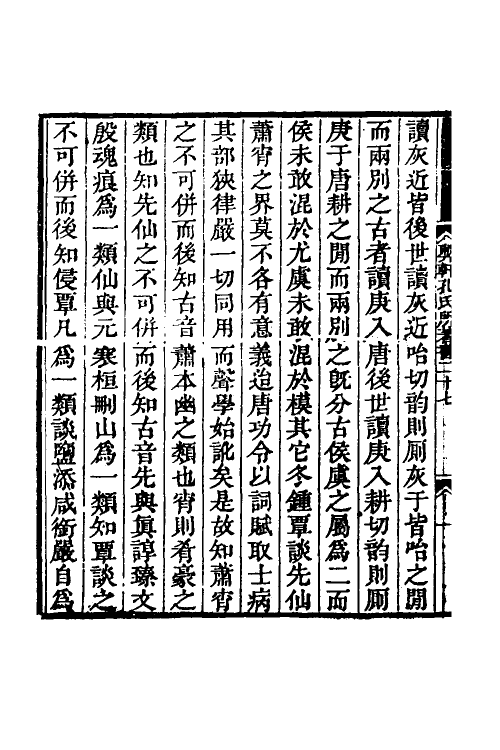 讀灰近皆後世讀灰近咍切韵則厠灰于皆咍之閒
而兩別之古者讀庚入唐後世讀庚入耕切韵則厠
庚于唐耕之閒而兩別之旣分古侯虞之屬爲二而
侯未敢混於尤虞未敢混於模其它冬鍾覃談先仙
蕭宵之界莫不各有意義迨唐功令以詞賦取士病
其部狹律嚴一切同用而聲學始訛矣是故知蕭宵
之不可併而後知古音蕭本幽之類也宵則肴豪之
類也知先仙之不可併而後知古音先與眞諄臻文
殷魂痕爲一類仙與元寒桓刪山爲一類知覃談之
不可併而後知侵覃凡爲一類談鹽添咸銜嚴自爲